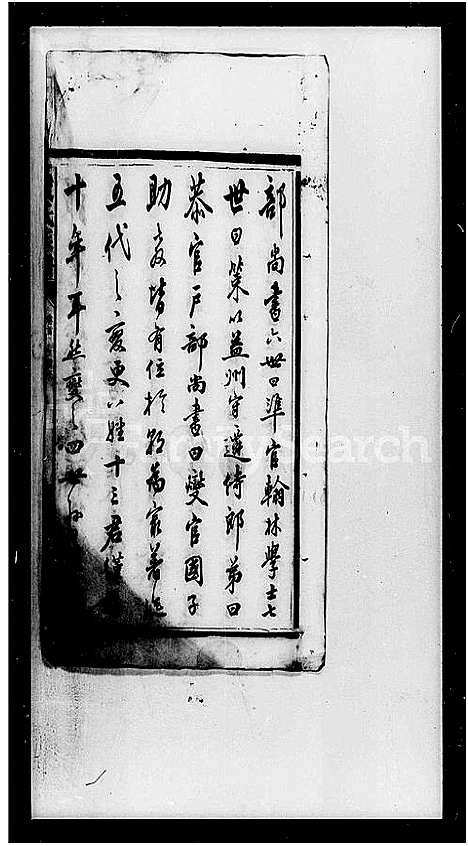 部尚書六世曰準官翰林學士七
世曰策以益州守遷侍郎弟曰
恭官戶部尚書曰燮官國子
助教皆有位於朝為家著
五代之變更八姓十三君
十年耳
FamilySearch